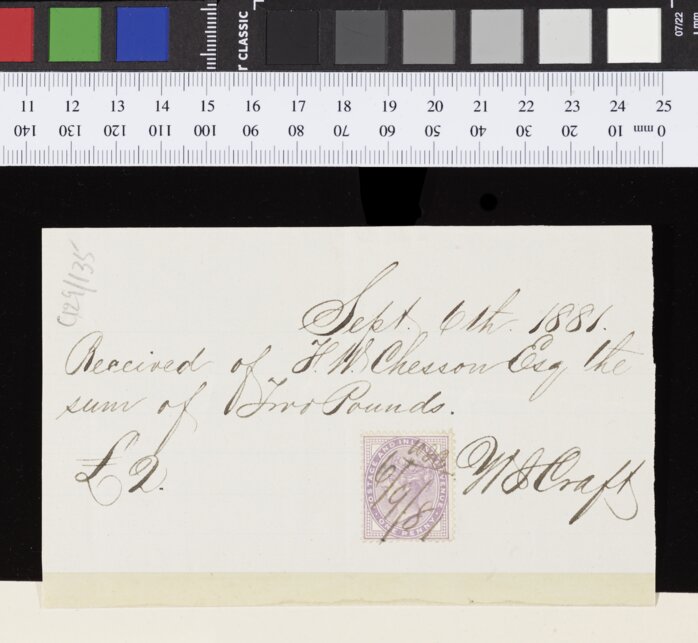 CLASSIC
07/22
mm
11 12 13 14 15 16 17 18 19 20 21 22 23 24 25
140 130 120 110 100 90 80 70 60 50 40 30 20 10 mm 0
C129/135
Sept. 6th. 1881.
Received of F. W. Chesson Esq the
sum of Two Pounds.
£2.
POSTAGE AND INLAND REVENUE
ONE PENNY
6/9/81
W J Craft